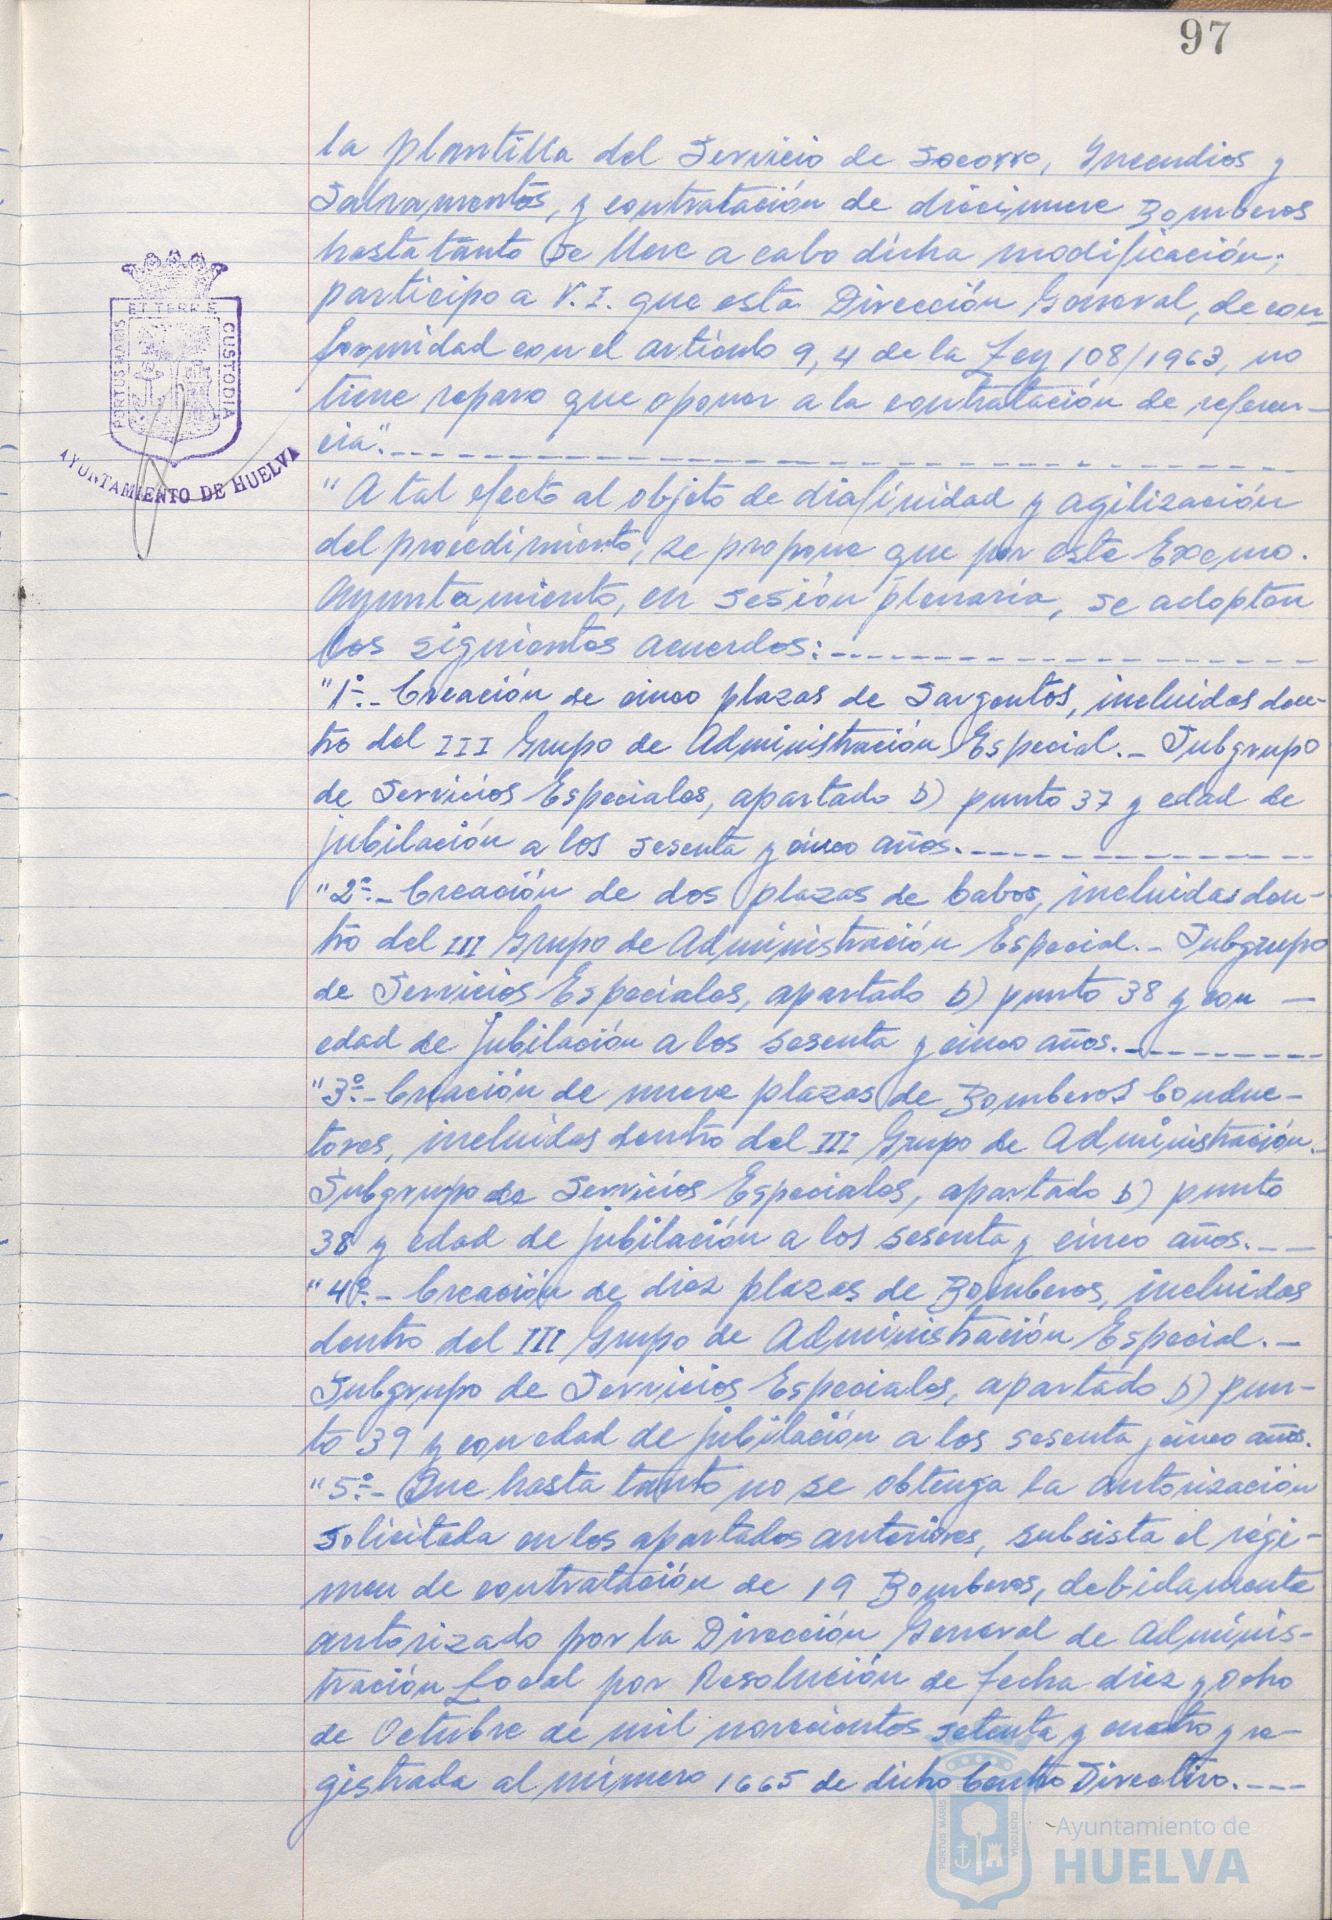 97
la plantilla del Servicio de Socorro, Incendios y
Salvamentos, y contratación de diecinueve Bomberos
hasta tanto se lleve a cabo dicha modificación;
participo a V.I. que esta Dirección General, de con-
formidad con el artículo 9, 4 de la Ley 108/1963, no
tiene reparo que oponer a la contratación de referen-
cia".
"A tal efecto al objeto de diafinidad y agilización
del procedimiento, se propone que por este Excmo.
Ayuntamiento, en sesión plenaria, se adopten
los siguientes acuerdos:
"1º.- Creación de cinco plazas de Sargentos, incluidas den-
tro del III Grupo de Administración Especial.- Subgrupo
de Servicios Especiales, apartado b) punto 37 y edad de
jubilación a los sesenta y cinco años.
"2º.- Creación de dos plazas de Cabos, incluidas den-
tro del III Grupo de Administración Especial.- Subgrupo
de Servicios Especiales, apartado b) punto 38 y con
edad de jubilación a los sesenta y cinco años.
"3º.- Creación de nueve plazas de Bomberos Conduc-
tores, incluidas dentro del III Grupo de Administración.-
Subgrupo de Servicios Especiales, apartado b) punto
38 y edad de jubilación a los sesenta y cinco años.
"4º.- Creación de diez plazas de Bomberos, incluidas
dentro del III Grupo de Administración Especial.-
Subgrupo de Servicios Especiales, apartado b) pun-
to 39 y con edad de jubilación a los sesenta y cinco años.
"5º.- Que hasta tanto no se obtenga la autorización
solicitada en los apartados anteriores, subsista el régi-
men de contratación de 19 Bomberos, debidamente
autorizado por la Dirección General de Adminis-
tración Local por Resolución de fecha diez y ocho
de Octubre de mil novecientos setenta y cuatro y re-
gistrada al número 1665 de dicho Centro Directivo.
ET TERRAE
PORTUS MARIS
CUSTODIA
AYUNTAMIENTO DE HUELVA
PORTUS MARIS
CUSTODIA
Ayuntamiento de
HUELVA